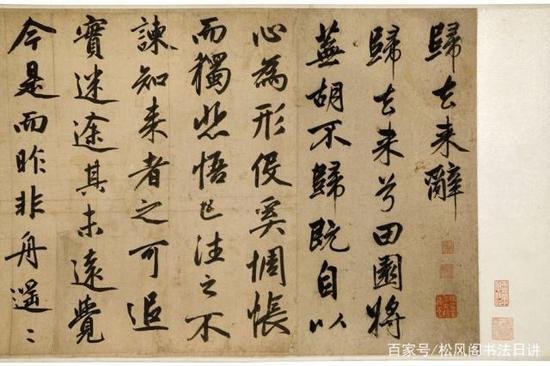 歸去来辭
歸去来兮田園將
蕪胡不歸既自以
心為形役奚惆悵
而獨悲悟已往之不
諫知来者之可追
實迷途其未遠覺
今是而昨非舟遥〻
百家号/松风阁书法日讲